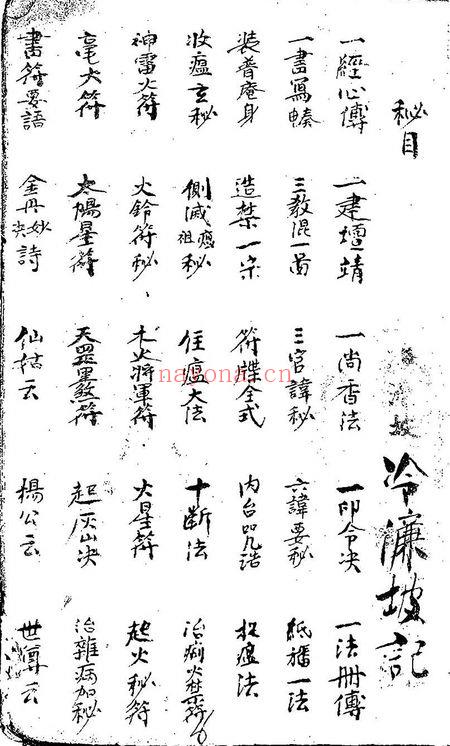 秘目
冷濂坡記
一經心傳 一建壇靖 一尚香法 一印令决 一法冊傳
一書寫 三教混一啚 三官諱秘 六諱要秘 紙旛一法
裝普庵身 造 一宗 符牒全式 内台咒誥 瘟法
收瘟玄秘 滅瘟祖秘 大法 十断法 治痢
神雷火符 火鈴符秘 木火將軍符 火星符 起火秘符
毫火符 太陽星符 天罡黑煞符 起灰山决 治雜病加秘
書符要語 金丹妙决詩 仙姑云 楊公云 世傳云
nayona.cn